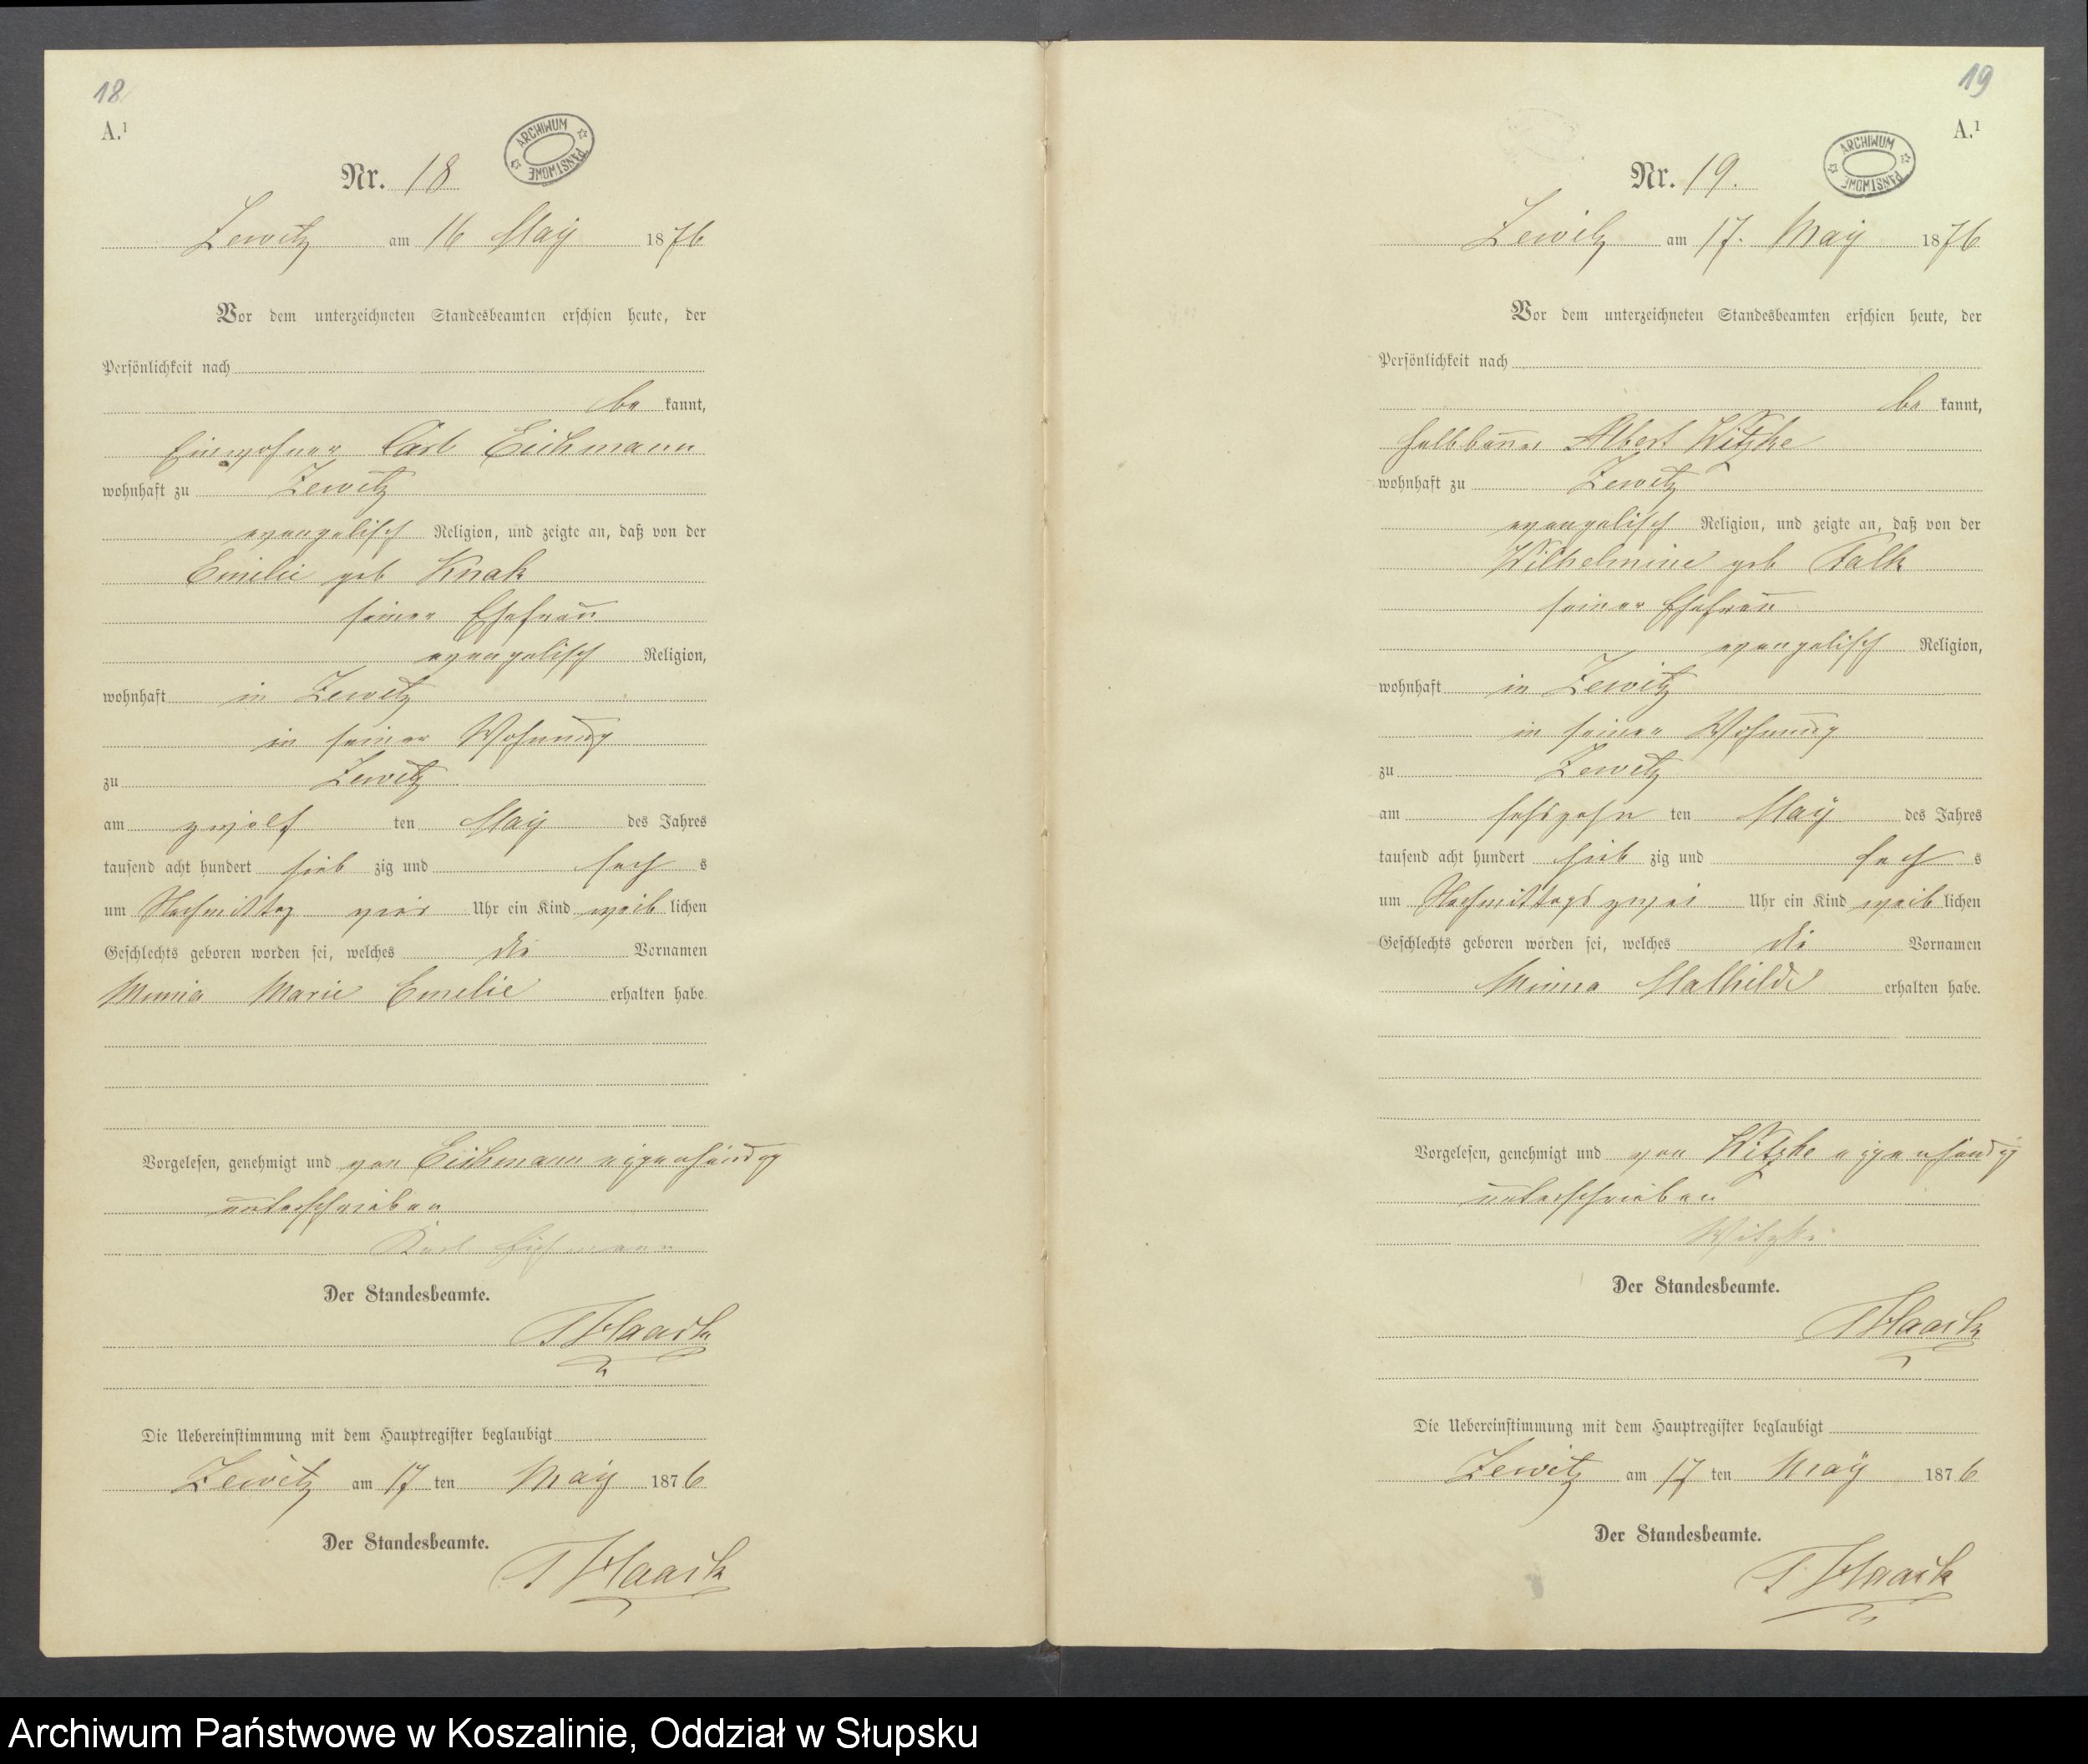 18
A.¹
ARCHIWUM PAŃSTWOWE
Nr. 18
Zewitz am 16 May 1876
Vor dem unterzeichneten Standesbeamten erschien heute, der
Persönlichkeit nach
be kannt,
Einwohner Carl Eichmann
wohnhaft zu Zewitz
evangelisch Religion, und zeigte an, daß von der
Emilie geb Knak
seiner Ehefrau
evangelisch Religion,
wohnhaft in Zewitz
in seiner Wohnung
zu Zewitz
am zwölf ten May des Jahres
tausend acht hundert sieb zig und sech s
um Nachmittag vier Uhr ein Kind weib lichen
Geschlechts geboren worden sei, welches die Vornamen
Marie Emelie erhalten habe.
Vorgelesen, genehmigt und von Eichmann eigenhändig
unterschrieben
Karl Eichmann
Der Standesbeamte.
Haack
Die Uebereinstimmung mit dem Hauptregister beglaubigt
Zewitz am 17 ten May 1876
Der Standesbeamte.
Haack
19
A.¹
ARCHIWUM PAŃSTWOWE
Nr. 19.
Zewitz am 17. May 1876
Vor dem unterzeichneten Standesbeamten erschien heute, der
Persönlichkeit nach
be kannt,
Halbbauer Albert Witzke
wohnhaft zu Zewitz
evangelisch Religion, und zeigte an, daß von der
Wilhelmine geb Falk
seiner Ehefrau
evangelisch Religion,
wohnhaft in Zewitz
in seiner Wohnung
zu Zewitz
am sechszehn ten May des Jahres
tausend acht hundert sieb zig und sech s
um Nachmittags zwei Uhr ein Kind weib lichen
Geschlechts geboren worden sei, welches die Vornamen
Minna Mathilde erhalten habe.
Vorgelesen, genehmigt und von Witzke eigenhändig
unterschrieben
Witzke
Der Standesbeamte.
Haack
Die Uebereinstimmung mit dem Hauptregister beglaubigt
Zewitz am 17 ten May 1876
Der Standesbeamte.
Haack
Archiwum Państwowe w Koszalinie, Oddział w Słupsku